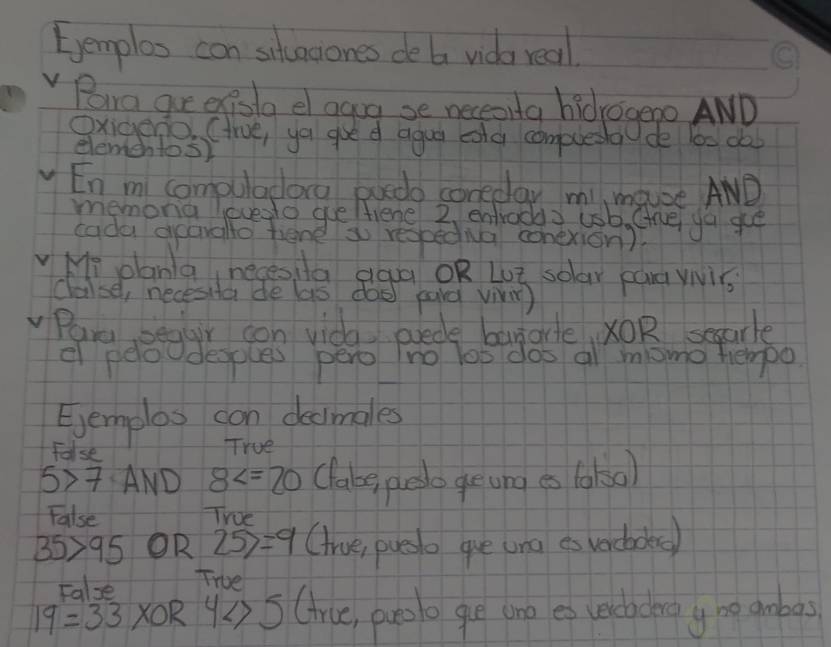 Ejemplos con situaciones de la vida real.
Para que exista el agua se necesita hidrógeno AND
Oxigeno. (true, ya que el agua esta compuesta de los dos
elementos)
En mi computadora puedo conectar mi mouse AND
memoria puesto que tiene 2 entradas usb, (true, ya que
cada aparato tiene su respectiva conexión).
Mi planta necesita agua OR Luz solar para vivir.
(false, necesita de las dos para vivir)
Para seguir con vida puede bañarte XOR secarte
el pelo despues pero no los dos al mismo tiempo.
Ejemplos con decimales
False True
5>7 AND 8<=20 (false, puesto que una es falsa)
False True
35>95 OR 25>=9 (true, puesto que una es verdadera)
False True
19=33 XOR 4<>5 (true, puesto que una es verdadera y no ambas.